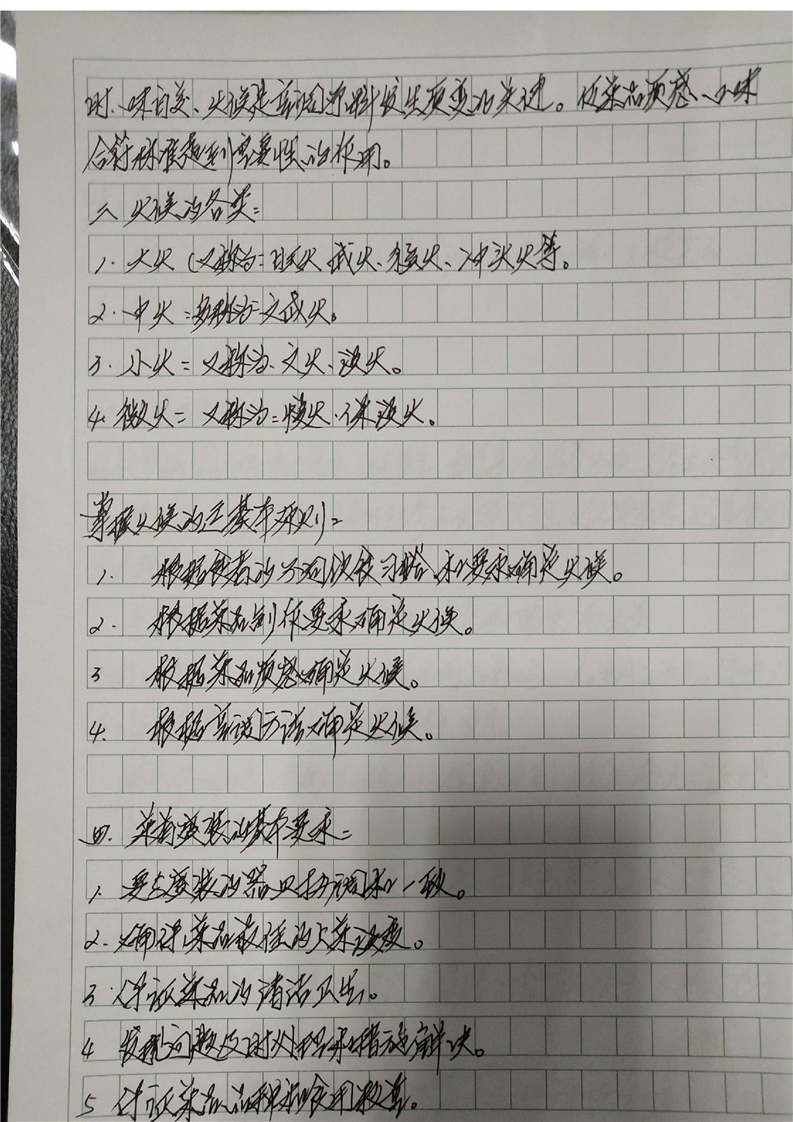 时、味白美、火候是烹调原料发生质变的关键。使菜品质感、口味
合符标准起到重要性的作用。
二、火候的各类：
1. 大火（又称为：旺火、武火、猛火、冲头火等。
2. 中火：又称为：文武火。
3. 小火：又称为、文火、温火。
4. 微火：又称为：慢火、保温火。
掌握火候的基本原则：
1. 根据食者的不同饮食习俗和要求确定火候。
2. 根据菜品制作要求确定火候。
3 根据菜品质感确定火候。
4. 根据烹调方法确定火候。
四. 菜肴盛装的基本要求：
1. 要与盛装的器皿协调和一致。
2. 确保菜品最佳的上菜温度。
3. 保证菜品的清洁卫生。
4 发现问题及时处理采措施解决。
5 保证菜品品种食用数量。